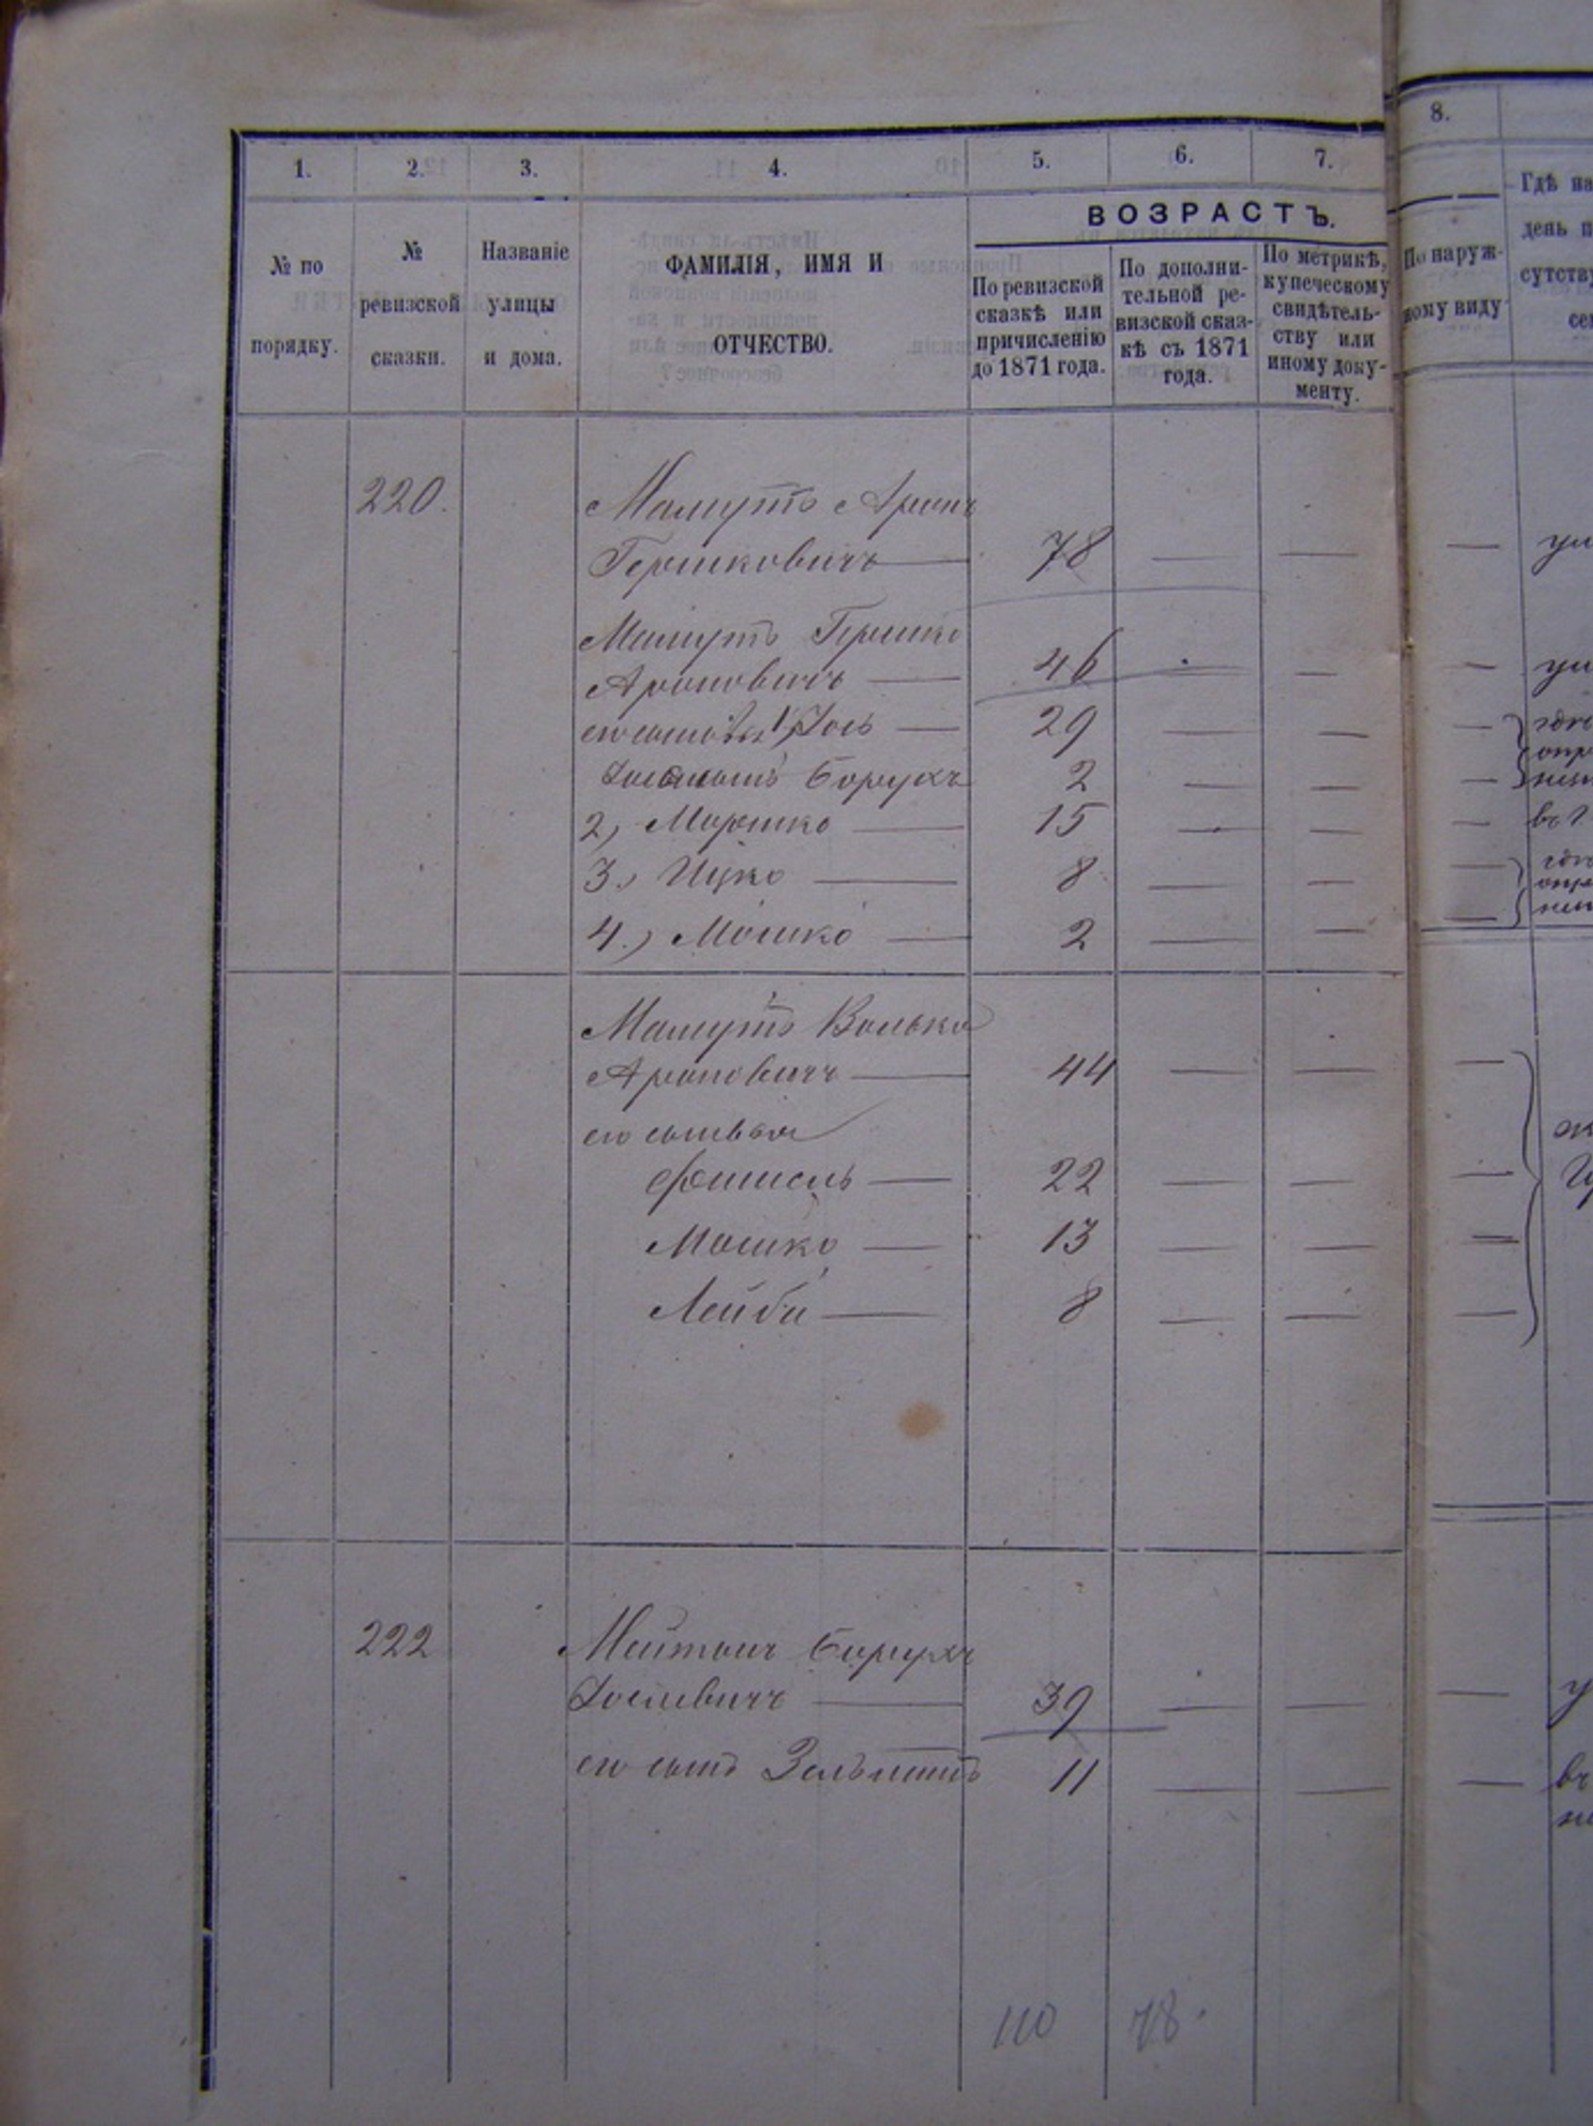 1. 2. 3. 4. 5. 6. 7. 8.
№ по порядку.
№ ревизской сказки.
Названіе улицы и дома.
ФАМИЛІЯ, ИМЯ И
ОТЧЕСТВО.
ВОЗРАСТЪ.
По ревизской
сказкѣ или
причисленію
до 1871 года.
По дополни-
тельной ре-
визской сказ-
кѣ съ 1871
года.
По метрикѣ,
купеческому
свидѣтель-
ству или
иному доку-
менту.
По наруж-
ному виду
Гдѣ на
день п
сутству
220. Мамутъ Аронъ
Гершковичъ — 78 — — —
Мамутъ Гершко
Ароновичъ — 46 — — —
его сыновья 1, Іось — 29 — — —
Борухъ 2 — — —
2, Мордко — 15 — — —
3., Ицко — 8 — — —
4.) Мошко — 2 — — —
Мамутъ Волько
Ароновичъ — 44 — — —
его сыновья
Фишель — 22 — — —
Мошко — 13 — — —
Лейба — 8 — — —
222 Борухъ
Іоселевичъ — 39 — — —
его сынъ Зельманъ 11 — — —
110 78.